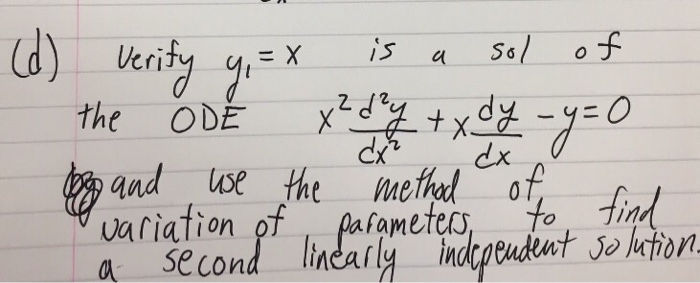 (d) Verify y₁ = x is a sol of
the ODE x² d²y/dx² + x dy/dx - y = 0
and use the method of
variation of parameters, to find
a second linearly independent solution.